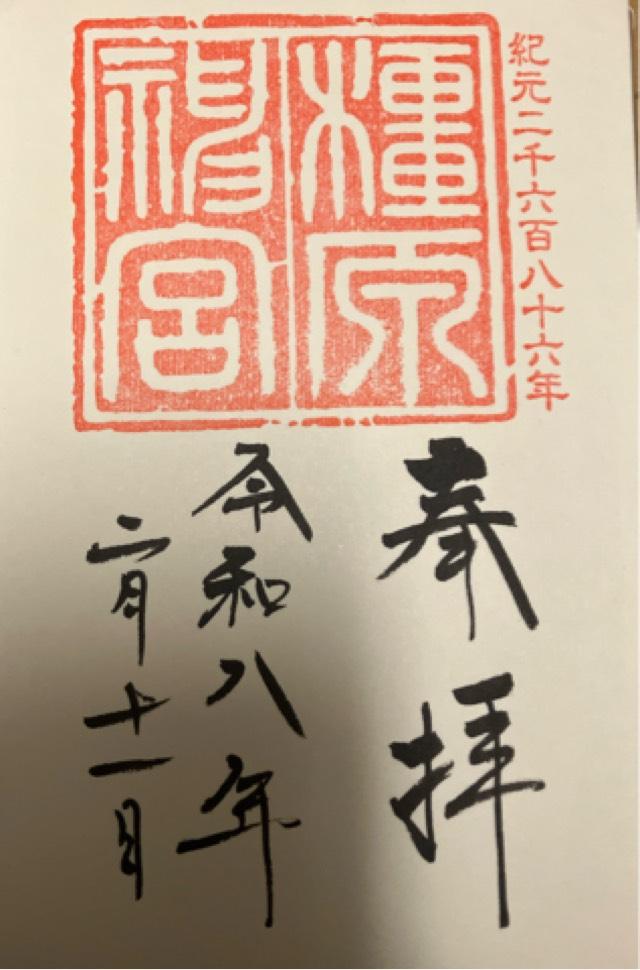 紀元二千六百八十六年
橿原
神宮
奉拝
令和八年
二月十一日